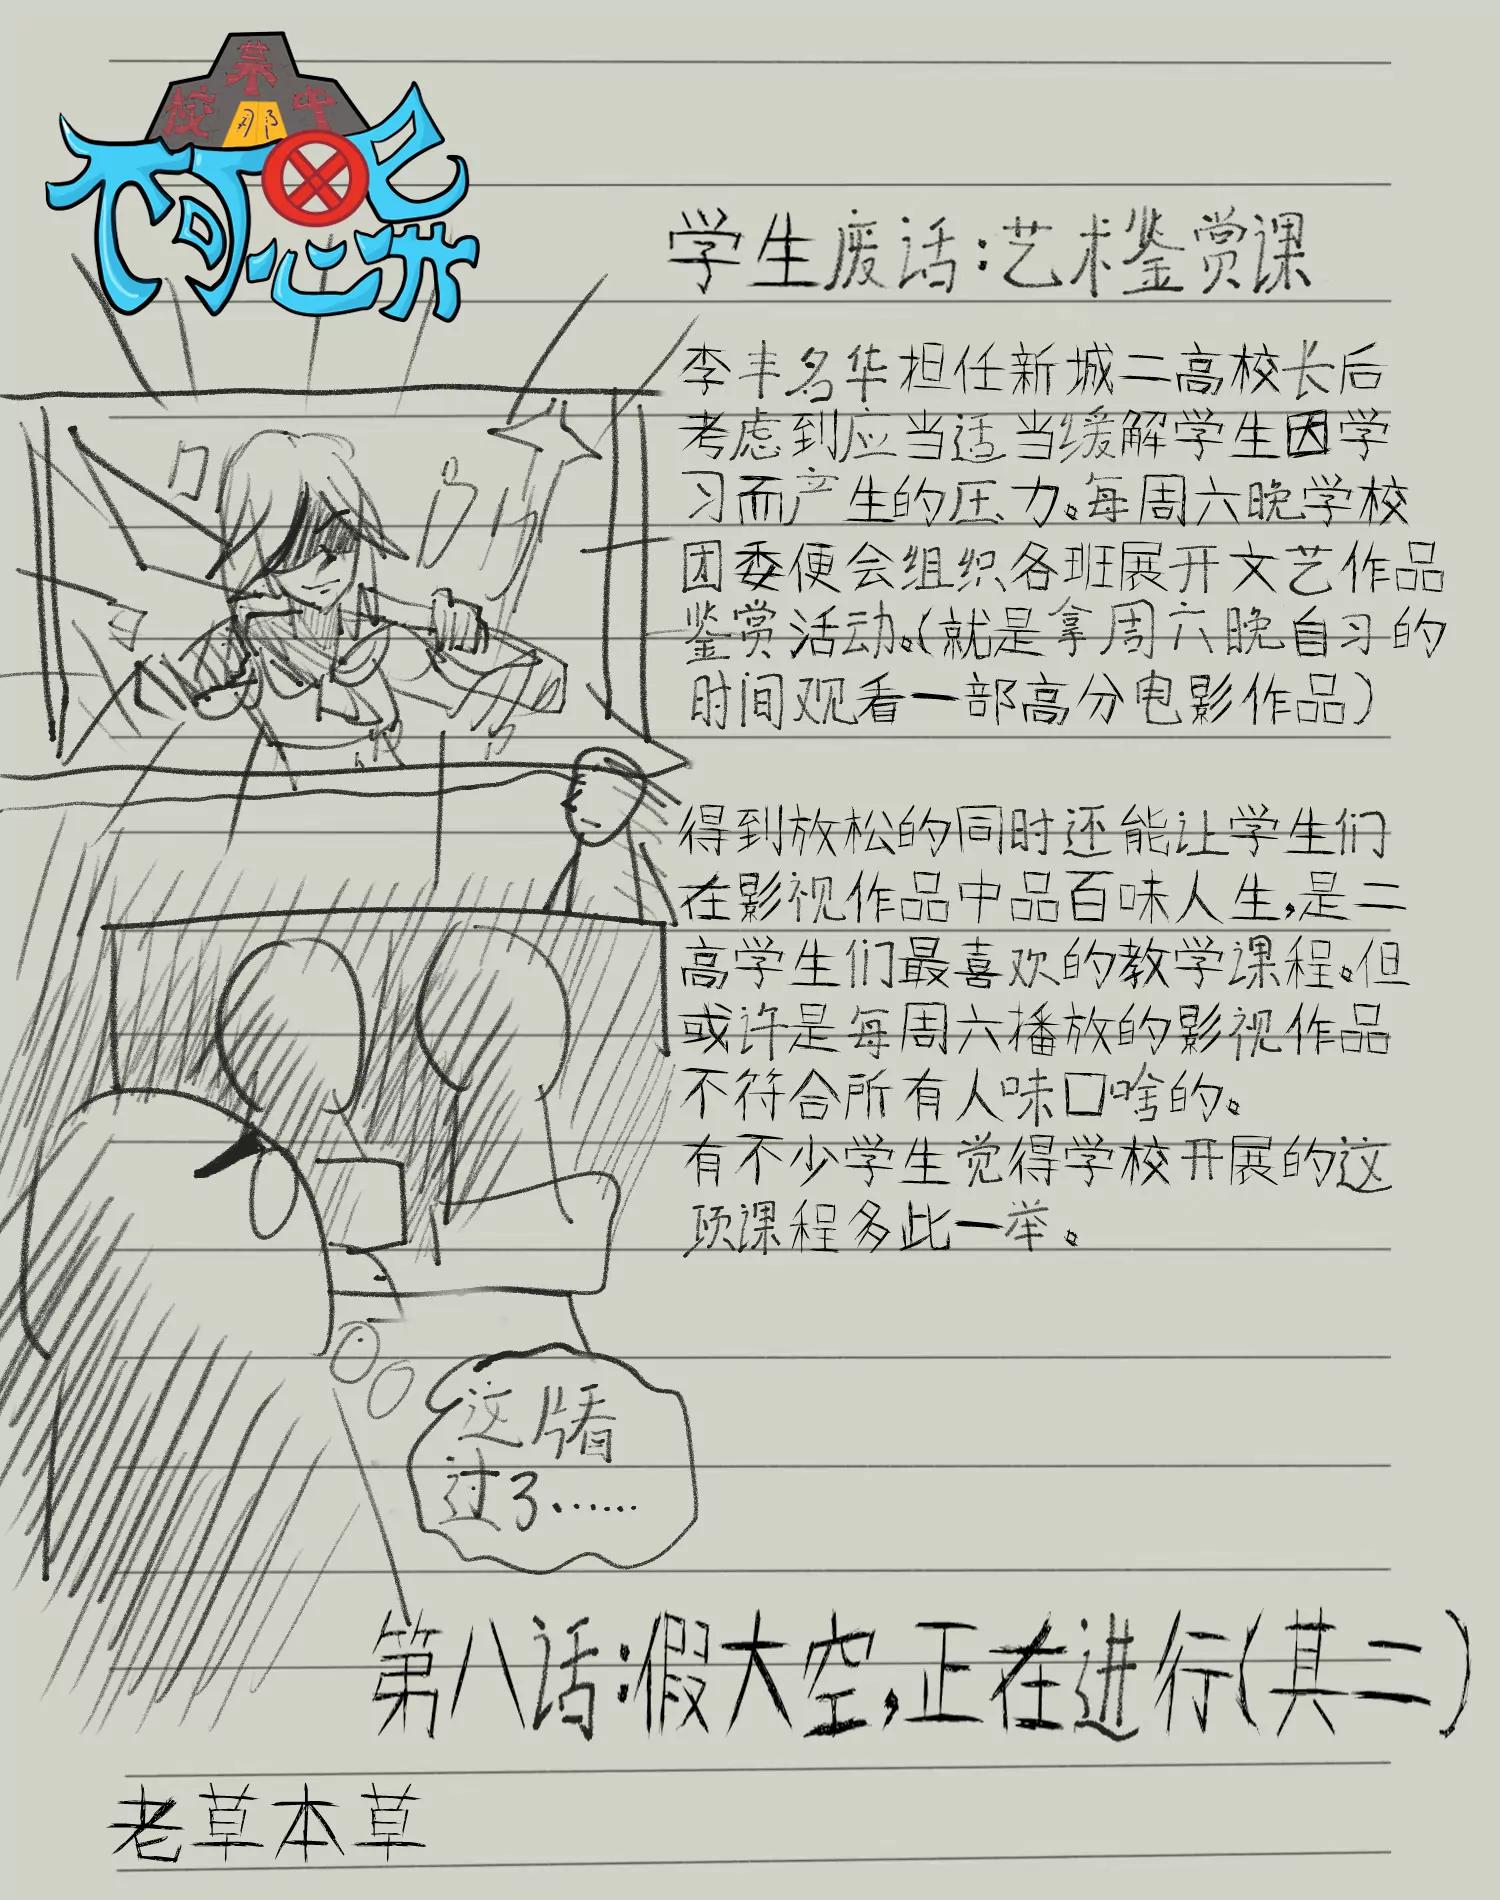 某
校 中
那
不可思議
学生废话:艺术鉴赏课
李丰名华担任新城二高校长后
考虑到应当适当缓解学生因学
习而产生的压力。每周六晚学校
团委便会组织各班展开文艺作品
鉴赏活动。(就是拿周六晚自习的
时间观看一部高分电影作品)
得到放松的同时还能让学生们
在影视作品中品百味人生,是二
高学生们最喜欢的教学课程。但
或许是每周六播放的影视作品
不符合所有人味口啥的。
有不少学生觉得学校开展的这
项课程多此一举。
这片看
过了……
第八话:假大空,正在进行(其二)
老草本草